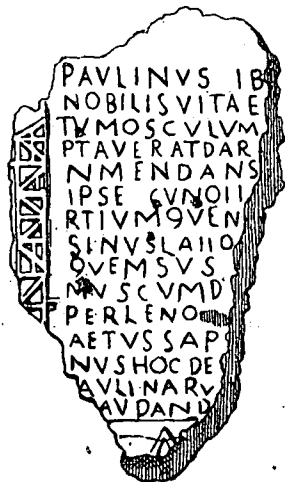 PAVLINVS IB
NOBILIS VITAE
TVMOSCVLVM
PTAVERATDAR
NMENDANS
IPSE CVNOII
RTIVM QVEN
SINVS LAIIO
QVEMSVS
NVSCVMD
PERLENO
AETVS SAP
NVS HOC DE
AVLINARV
AVDAND